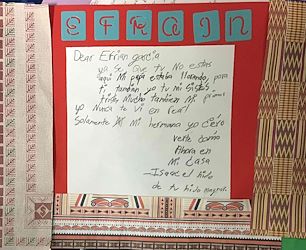 EFRAIN
Dear Efrian garcia
ya se que tu No estas
aquí Mi papa estaba llorando, para
ti tambien yo tu mi sistas
tristes Mucho Tambien Mi primos
yo Nunca te vi en real
Solamente Mi hermana yo cero
verte como
Ahora en
Mi casa
-Isaac el hijo
de tu hijo